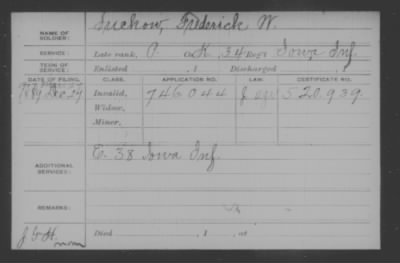 NAME OF SOLDIER: Suchow, Frederick W.
SERVICE: Late rank, P. Co K, 34 Reg't Iowa Inf.
TERM OF SERVICE: Enlisted , 1 Discharged
DATE OF FILING. CLASS. APPLICATION NO. LAW. CERTIFICATE NO.
1889 Dec 27 Invalid, 746044 520.939.
Widow,
Minor,
ADDITIONAL SERVICES: E. 38 Iowa Inf.
REMARKS:
Died , 1 , at